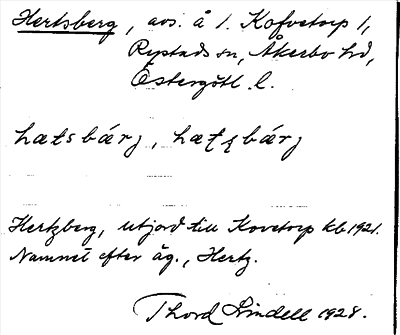 Hertsberg, avs. å 1. Kofvetorp 1,
Rystads sn, Åkerbo hd,
Östergötl. l.
hætsbárj, hæt
Hertzberg, utjord till Kovetorp kb 1921.
Namnet efter äg., Hertz.
Thord Lindell 1928.